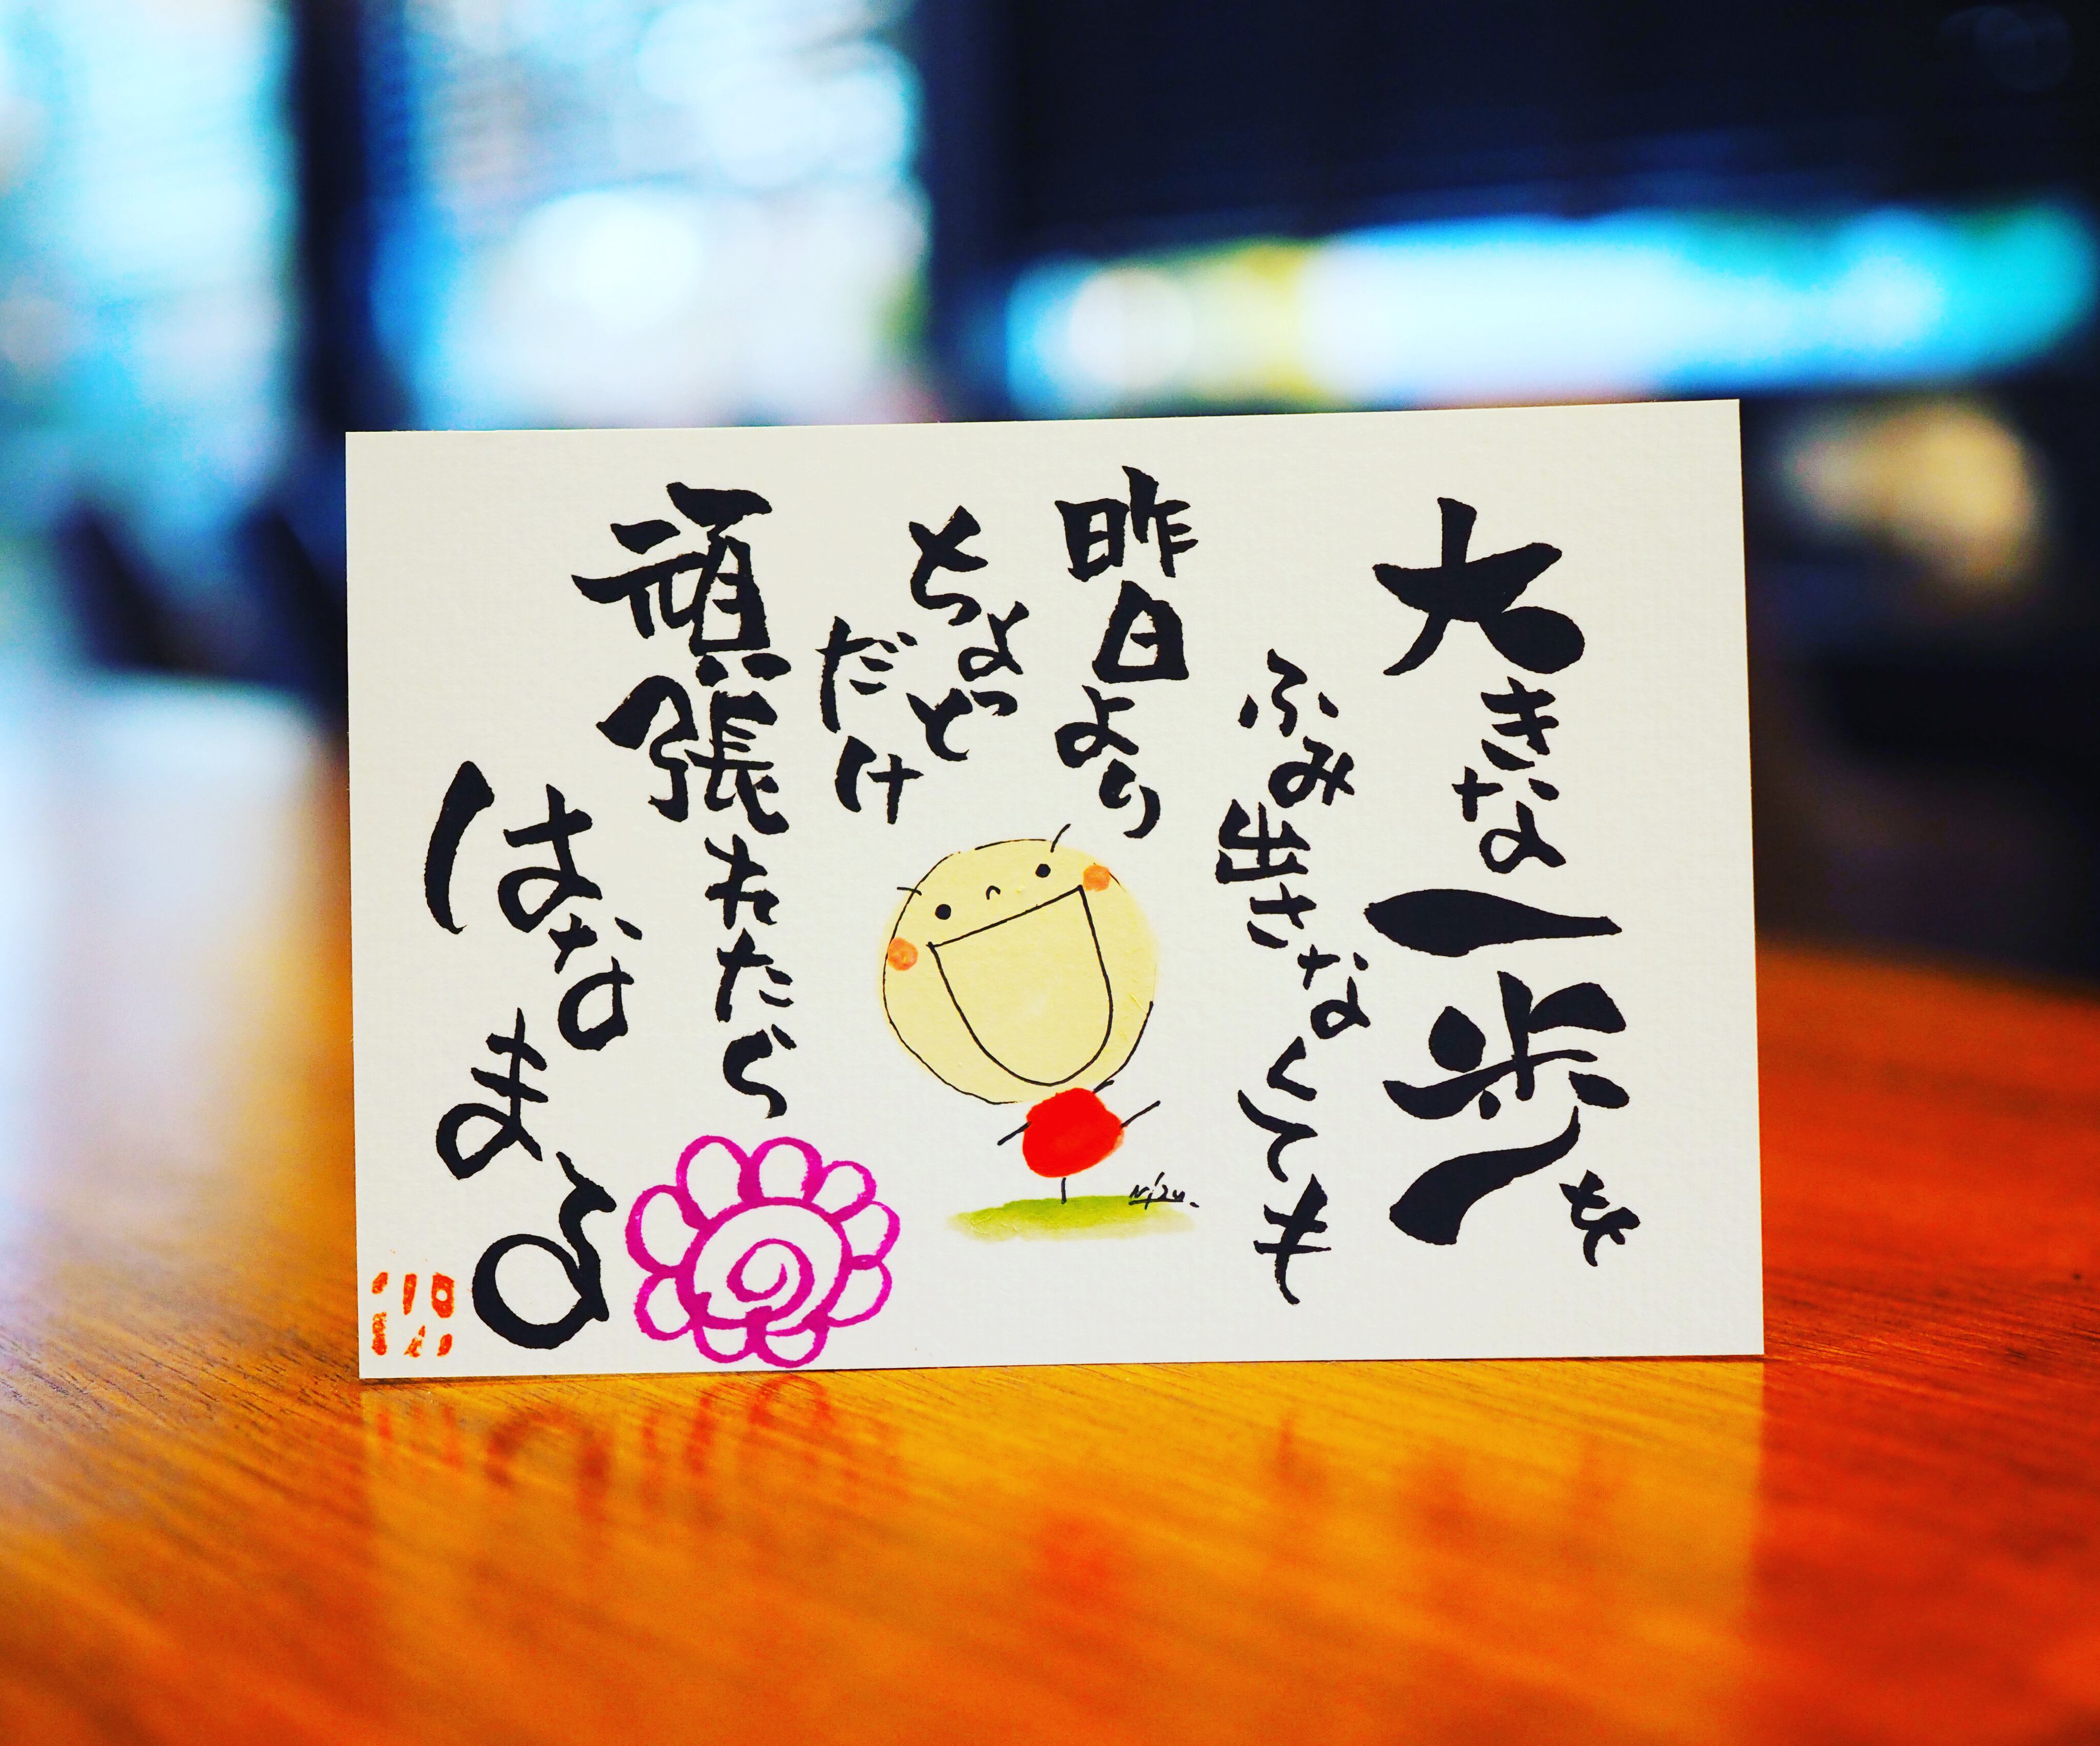 大きな一歩を
ふみ出さなくても
昨日より
ちょっと
だけ
頑張れたら
はなまる